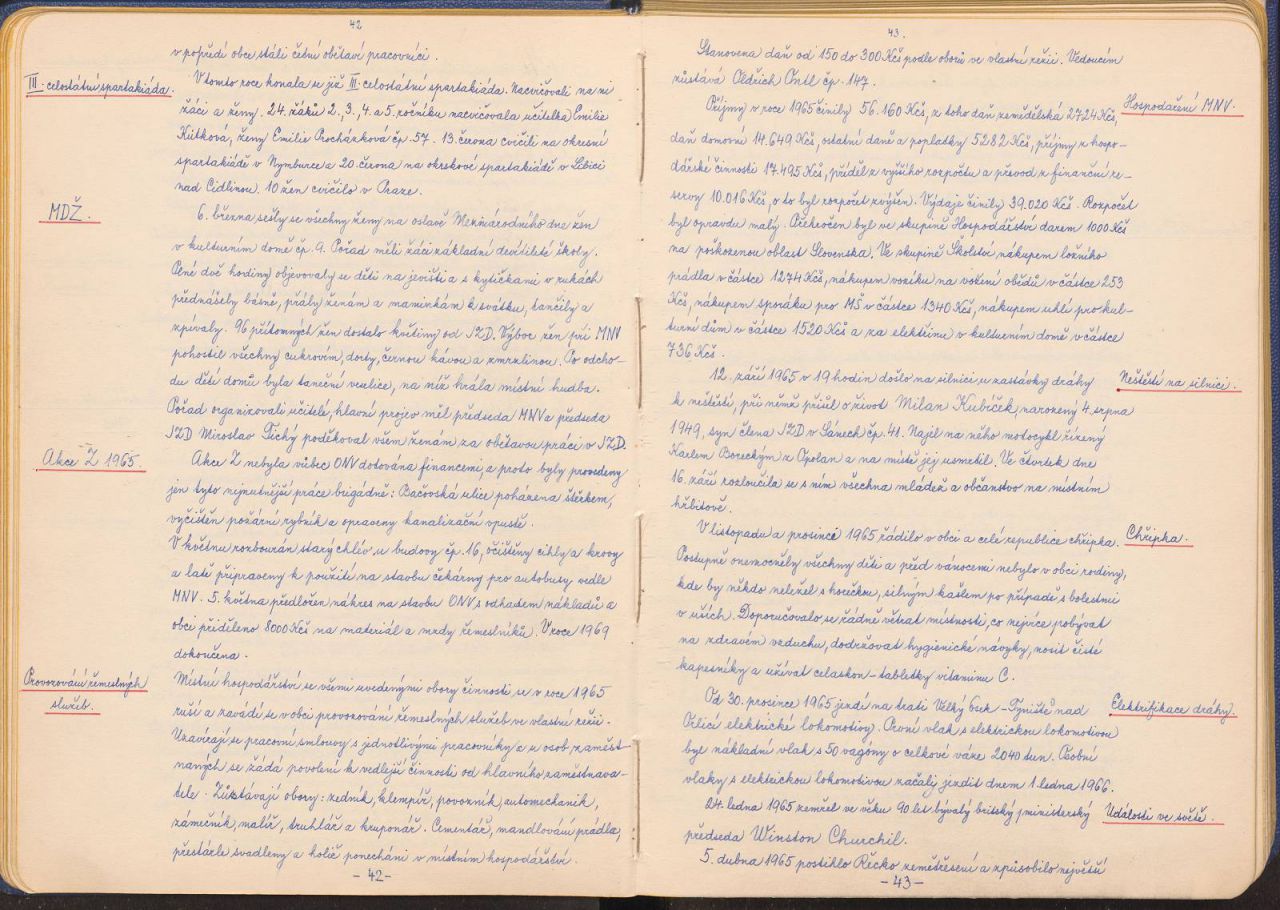 42
v popředí obce stáli četní obětaví pracovníci.
III. celostátní spartakiáda.
V tomto roce konala se již III. celostátní spartakiáda. Nacvičovali na ni
žáci a ženy. 24 žáků 2., 3., 4. a 5. ročníku nacvičovala učitelka Emilie
Kutková, ženy Emilie Procházková čp. 57. 13. června cvičili na okresní
spartakiádě v Nymburce a 20. června na okrskové spartakiádě v Libici
nad Cidlinou. 10 žen cvičilo v Praze.
MDŽ.
6. března sešly se všechny ženy na oslavě Mezinárodního dne žen
v kulturním domě čp. 9. Pořad měli žáci základní devítileté školy.
Plné dvě hodiny objevovaly se děti na jevišti a s kytičkami v rukách
přednášely básně, přály ženám a maminkám k svátku, tančily a
zpívaly. 96 přítomných žen dostalo květiny od JZD. Výbor žen při MNV
pohostil všechny cukrovím, dorty, černou kávou a zmrzlinou. Po odcho-
du dětí domů byla taneční veselice, na níž hrála místní hudba.
Pořad organizovali učitelé, hlavní projev měl předseda MNV a předseda
JZD Miroslav Tichý poděkoval všem ženám za obětavou práci v JZD.
Akce Z 1965.
Akce Z nebyla vůbec ONV dotována financemi, a proto byly provedeny
jen tyto nejnutnější práce brigádně: Bačovská ulice poházena štěrkem,
vyčištěn požární rybník a opraveny kanalizační vpustě.
V květnu rozbourán starý chlév u budovy čp. 16, očištěny cihly a krovy
a latě připraveny k použití na stavbu čekárny pro autobusy vedle
MNV. 5. května předložen nákres na stavbu ONV s odhadem nákladů a
obci přiděleno 8000 Kčs na materiál a mzdy řemeslníků. V roce 1969
dokončena.
Provozování řemeslných
služeb.
Místní hospodářství se všemi uvedenými obory činnosti se v roce 1965
ruší a zavádí se v obci provozování řemeslných služeb ve vlastní režii.
Uzavírají se pracovní smlouvy s jednotlivými pracovníky a u osob zaměst-
naných se žádá povolení k vedlejší činnosti od hlavního zaměstnava-
tele. Zůstávají obory: zedník, klempíř, povozník, automechanik,
zámečník, malíř, truhlář a kruponář. Cementář, mandlování prádla,
přestárlé švadleny a holič ponecháni v místním hospodářství.
- 42 -
43.
Stanovena daň od 150 do 300 Kčs podle oborů ve vlastní režii. Vedoucím
zůstává Oldřich Ontl čp. 147.
Hospodaření MNV.
Příjmy v roce 1965 činily 56.160 Kčs, z toho daň zemědělská 2724 Kčs,
daň domovní 14.649 Kčs, ostatní daně a poplatky 5282 Kčs, příjmy z hospo-
dářské činnosti 17.495 Kčs, příděl z vyššího rozpočtu a převod z finanční re-
servy 10.016 Kčs, o to byl rozpočet zvýšen. Výdaje činily 39.020 Kčs. Rozpočet
byl opravdu malý. Překročen byl ve skupině Hospodářství darem 1000 Kčs
na poškozenou oblast Slovenska. Ve skupině Školství nákupem ložního
prádla v částce 1274 Kčs, nákupem vozíku na vožení obědů v částce 253
Kčs, nákupem sporáku pro MŠ v částce 1340 Kčs, nákupem uhlí pro kul-
turní dům v částce 1520 Kčs a za elektřinu v kulturním domě v částce
736 Kčs.
Neštěstí na silnici.
12. září 1965 v 19 hodin došlo na silnici u zastávky dráhy
k neštěstí, při němž přišel o život Milan Kubíček, narozený 4. srpna
1949, syn člena JZD v Sánech čp. 41. Najel na něho motocykl řízený
Karlem Boreckým z Opolan a na místě jej usmrtil. Ve čtvrtek dne
16. září rozloučila se s ním všechna mládež a občanstvo na místním
hřbitově.
Chřipka.
V listopadu a prosinci 1965 řádila v obci a celé republice chřipka.
Postupně onemocněly všechny děti a před vánocemi nebylo v obci rodiny,
kde by někdo neležel s horečkou, silným kašlem po případě s bolestmi
v uších. Doporučovalo se řádně větrat místnosti, co nejvíce pobývat
na zdravém vzduchu, dodržovat hygienické návyky, nosit čisté
kapesníky a užívat celaskon - tabletky vitaminu C.
Elektrifikace dráhy.
Od 30. prosince 1965 jezdí na trati Velký Osek - Týniště nad
Orlicí elektrické lokomotivy. První vlak s elektrickou lokomotivou
byl nákladní vlak s 50 vagóny o celkové váze 2040 tun. Osobní
vlaky s elektrickou lokomotivou začaly jezdit dnem 1. ledna 1966.
Události ve světě.
24. ledna 1965 zemřel ve věku 90 let bývalý britský ministerský
předseda Winston Churchil.
5. dubna 1965 postihlo Řecko zemětřesení a způsobilo největší
- 43 -